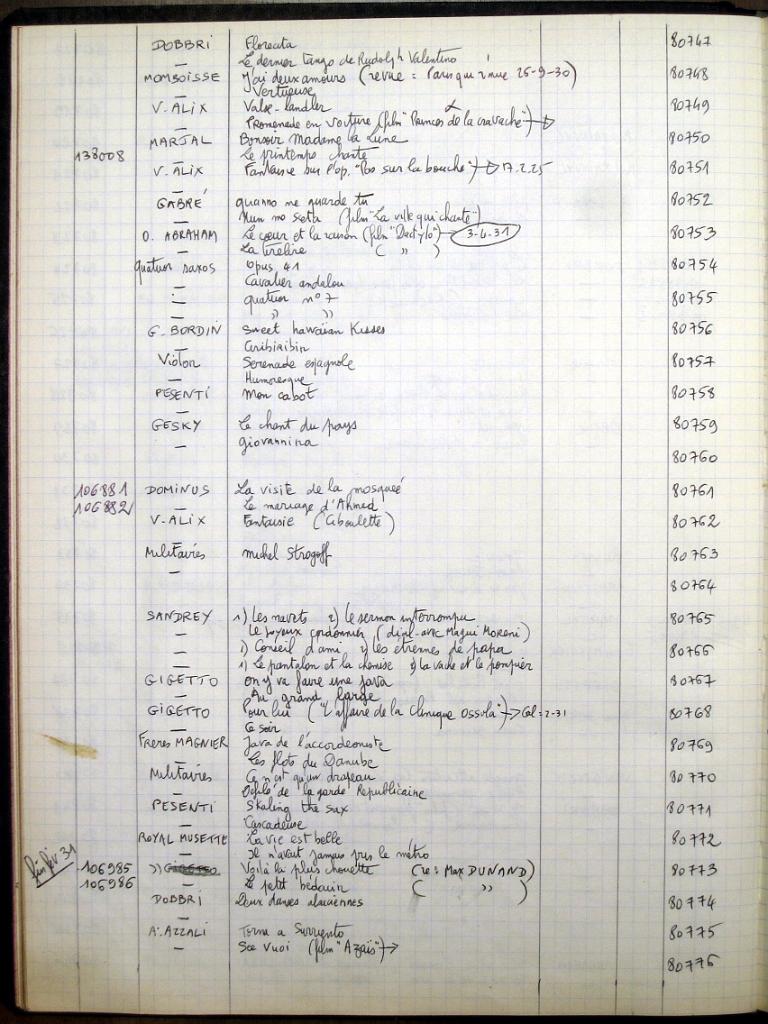 DOBBRI Floreata 80747
— Le dernier tango de Rudolph Valentino
MOMBOISSE J'ai deux amours (revue : Paris qui r'mue 26-9-30) 80748
— Vertueuse
V. ALIX Valse - landler 80749
— Promenade en voiture (film "Princes de la cravache")
MARJAL Bonsoir Madame la Lune 80750
138008 — Le printemps chante
V. ALIX Fantaisie sur l'op. "Pas sur la bouche") 17.2.25 80751
GABRÉ quanno me guarde tu 80752
— Nun me seta (film "La ville qui chante")
O. ABRAHAM Le cœur et la raison (film "Dactylo") 3-4-31 80753
— La tirelire ( " )
quatuor saxos Opus 41 80754
— Cavalier andalou
— quatuor n° 7 80755
— " "
G. BORDIN Sweet hawaian Kisses 80756
— Ciribiribin
Violon Serenade espagnole 80757
— Humoresque
PESENTI Mon cabot 80758
—
GESKY Le chant du pays 80759
— giovannina
80760
106881 DOMINUS La visite de la mosqueé 80761
106882 — Le mariage d'Ahmed
V. ALIX Fantaisie (Ciboulette) 80762
Militaires michel Strogoff 80763
—
80764
SANDREY 1) Les navets 2) Le sermon interrompu 80765
— Le joyeux cordonnier (dial. avec Magui Moreni)
— 1) Conseil d'ami 2) les etrennes de papa 80766
— 1) Le pantalon et la chemise 2) la vache et le pompier
GIGETTO on y va faire une java 80767
— Au grand large
GIGETTO Pour lui ("L'affaire de la clinique Ossola") → Gal = 2-31 80768
— Ce soir
Freres MAGNIER Java de l'accordeoniste 80769
— Les flots du Danube
Militaires Ce n'est qu'un drapeau 80770
— Defilé de la garde Republicaine
PESENTI Skating the sax 80771
— Cascadeuse
ROYAL MUSETTE La vie est belle 80772
— Il n'avait jamais pris le métro
106985 " Voilà la plus chouette (re : Max DUNAND) 80773
106986 — Le petit bédouin ( " )
DOBBRI Deux danses alsaciennes 80774
—
A. AZZALI Torna a Surriento 80775
— Se Vuoi (film "Azaïs") →
80776
fin fév 31